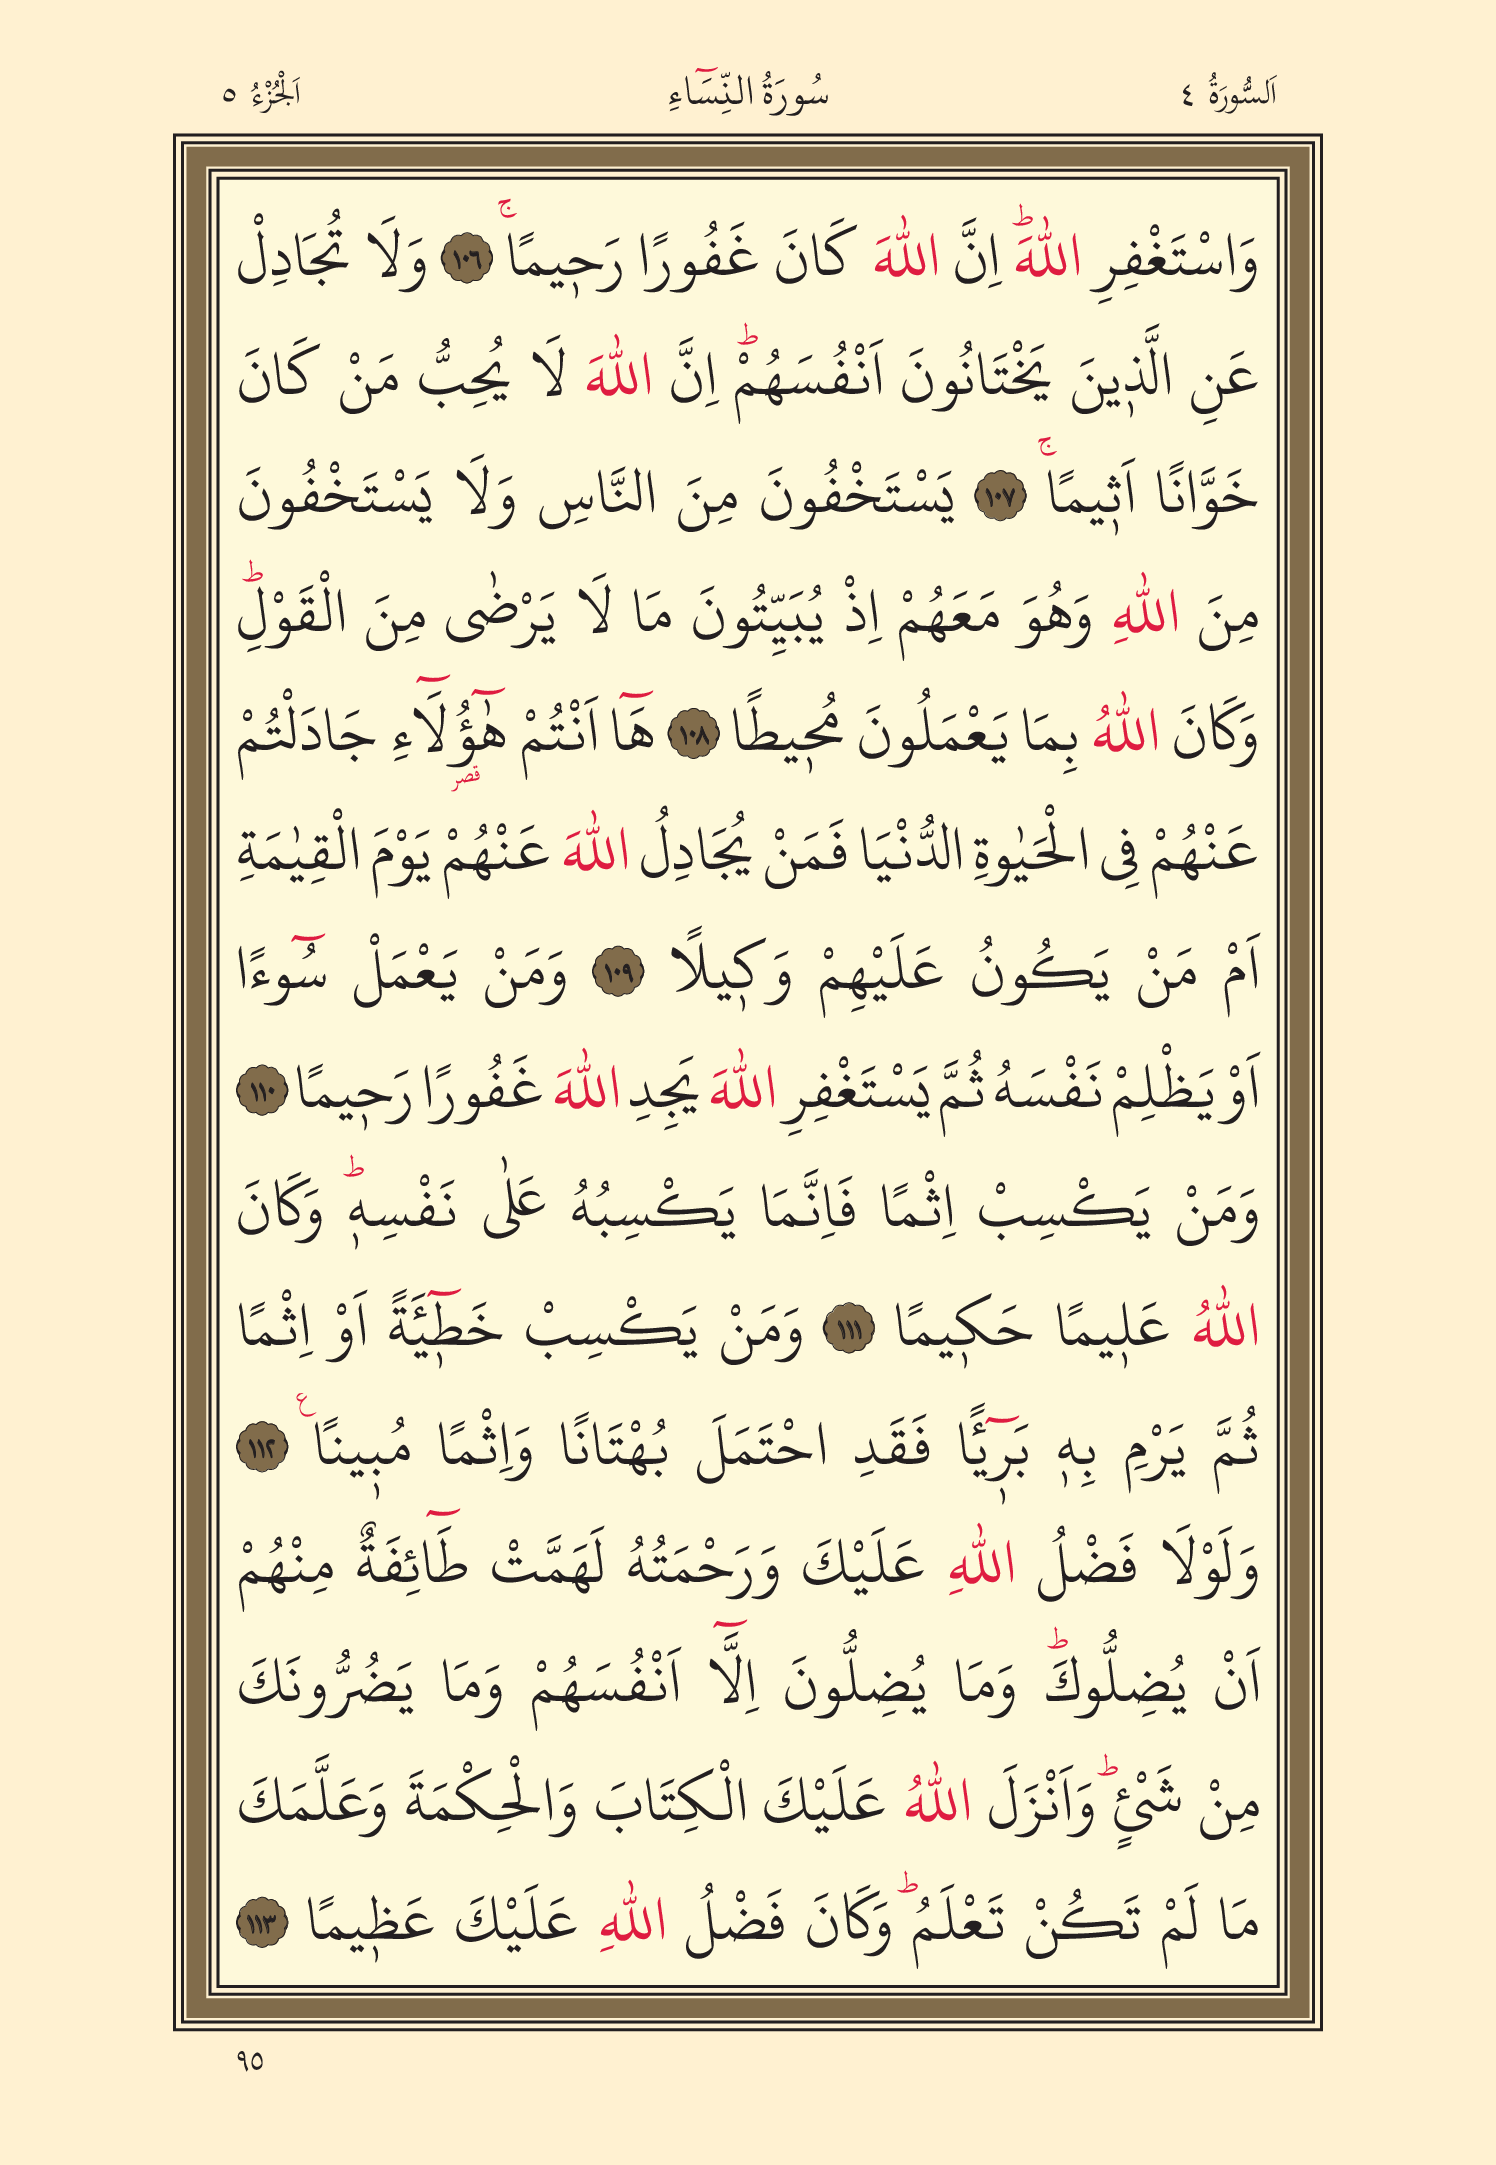 اَلسُّورَةُ ٤ سُورَةُ النِّسَٓاءِ اَلْجُزْءُ ٥
وَاسْتَغْفِرِ اللّٰهَؕ اِنَّ اللّٰهَ كَانَ غَفُورًا رَح۪يمًاۚ ١٠٦ وَلَا تُجَادِلْ
عَنِ الَّذ۪ينَ يَخْتَانُونَ اَنْفُسَهُمْؕ اِنَّ اللّٰهَ لَا يُحِبُّ مَنْ كَانَ
خَوَّانًا اَث۪يمًاۚ ١٠٧ يَسْتَخْفُونَ مِنَ النَّاسِ وَلَا يَسْتَخْفُونَ
مِنَ اللّٰهِ وَهُوَ مَعَهُمْ اِذْ يُبَيِّتُونَ مَا لَا يَرْضٰى مِنَ الْقَوْلِؕ
وَكَانَ اللّٰهُ بِمَا يَعْمَلُونَ مُح۪يطًا ١٠٨ هَٓا اَنْتُمْ هٰٓؤُ۬لَٓاءِ جَادَلْتُمْ
قصر
عَنْهُمْ فِى الْحَيٰوةِ الدُّنْيَا فَمَنْ يُجَادِلُ اللّٰهَ عَنْهُمْ يَوْمَ الْقِيٰمَةِ
اَمْ مَنْ يَكُونُ عَلَيْهِمْ وَك۪يلًا ١٠٩ وَمَنْ يَعْمَلْ سُٓوءًا
اَوْ يَظْلِمْ نَفْسَهُ ثُمَّ يَسْتَغْفِرِ اللّٰهَ يَجِدِ اللّٰهَ غَفُورًا رَح۪يمًا ١١٠
وَمَنْ يَكْسِبْ اِثْمًا فَاِنَّمَا يَكْسِبُهُ عَلٰى نَفْسِه۪ؕ وَكَانَ
اللّٰهُ عَل۪يمًا حَك۪يمًا ١١١ وَمَنْ يَكْسِبْ خَط۪ٓيـَٔةً اَوْ اِثْمًا
ثُمَّ يَرْمِ بِه۪ بَر۪ٓيـًٔا فَقَدِ احْتَمَلَ بُهْتَانًا وَاِثْمًا مُب۪ينًا ع ١١٢
وَلَوْلَا فَضْلُ اللّٰهِ عَلَيْكَ وَرَحْمَتُهُ لَهَمَّتْ طَٓائِفَةٌ مِنْهُمْ
اَنْ يُضِلُّوكَؕ وَمَا يُضِلُّونَ اِلَّٓا اَنْفُسَهُمْ وَمَا يَضُرُّونَكَ
مِنْ شَيْءٍؕ وَاَنْزَلَ اللّٰهُ عَلَيْكَ الْكِتَابَ وَالْحِكْمَةَ وَعَلَّمَكَ
مَا لَمْ تَكُنْ تَعْلَمُؕ وَكَانَ فَضْلُ اللّٰهِ عَلَيْكَ عَظ۪يمًا ١١٣
٩٥